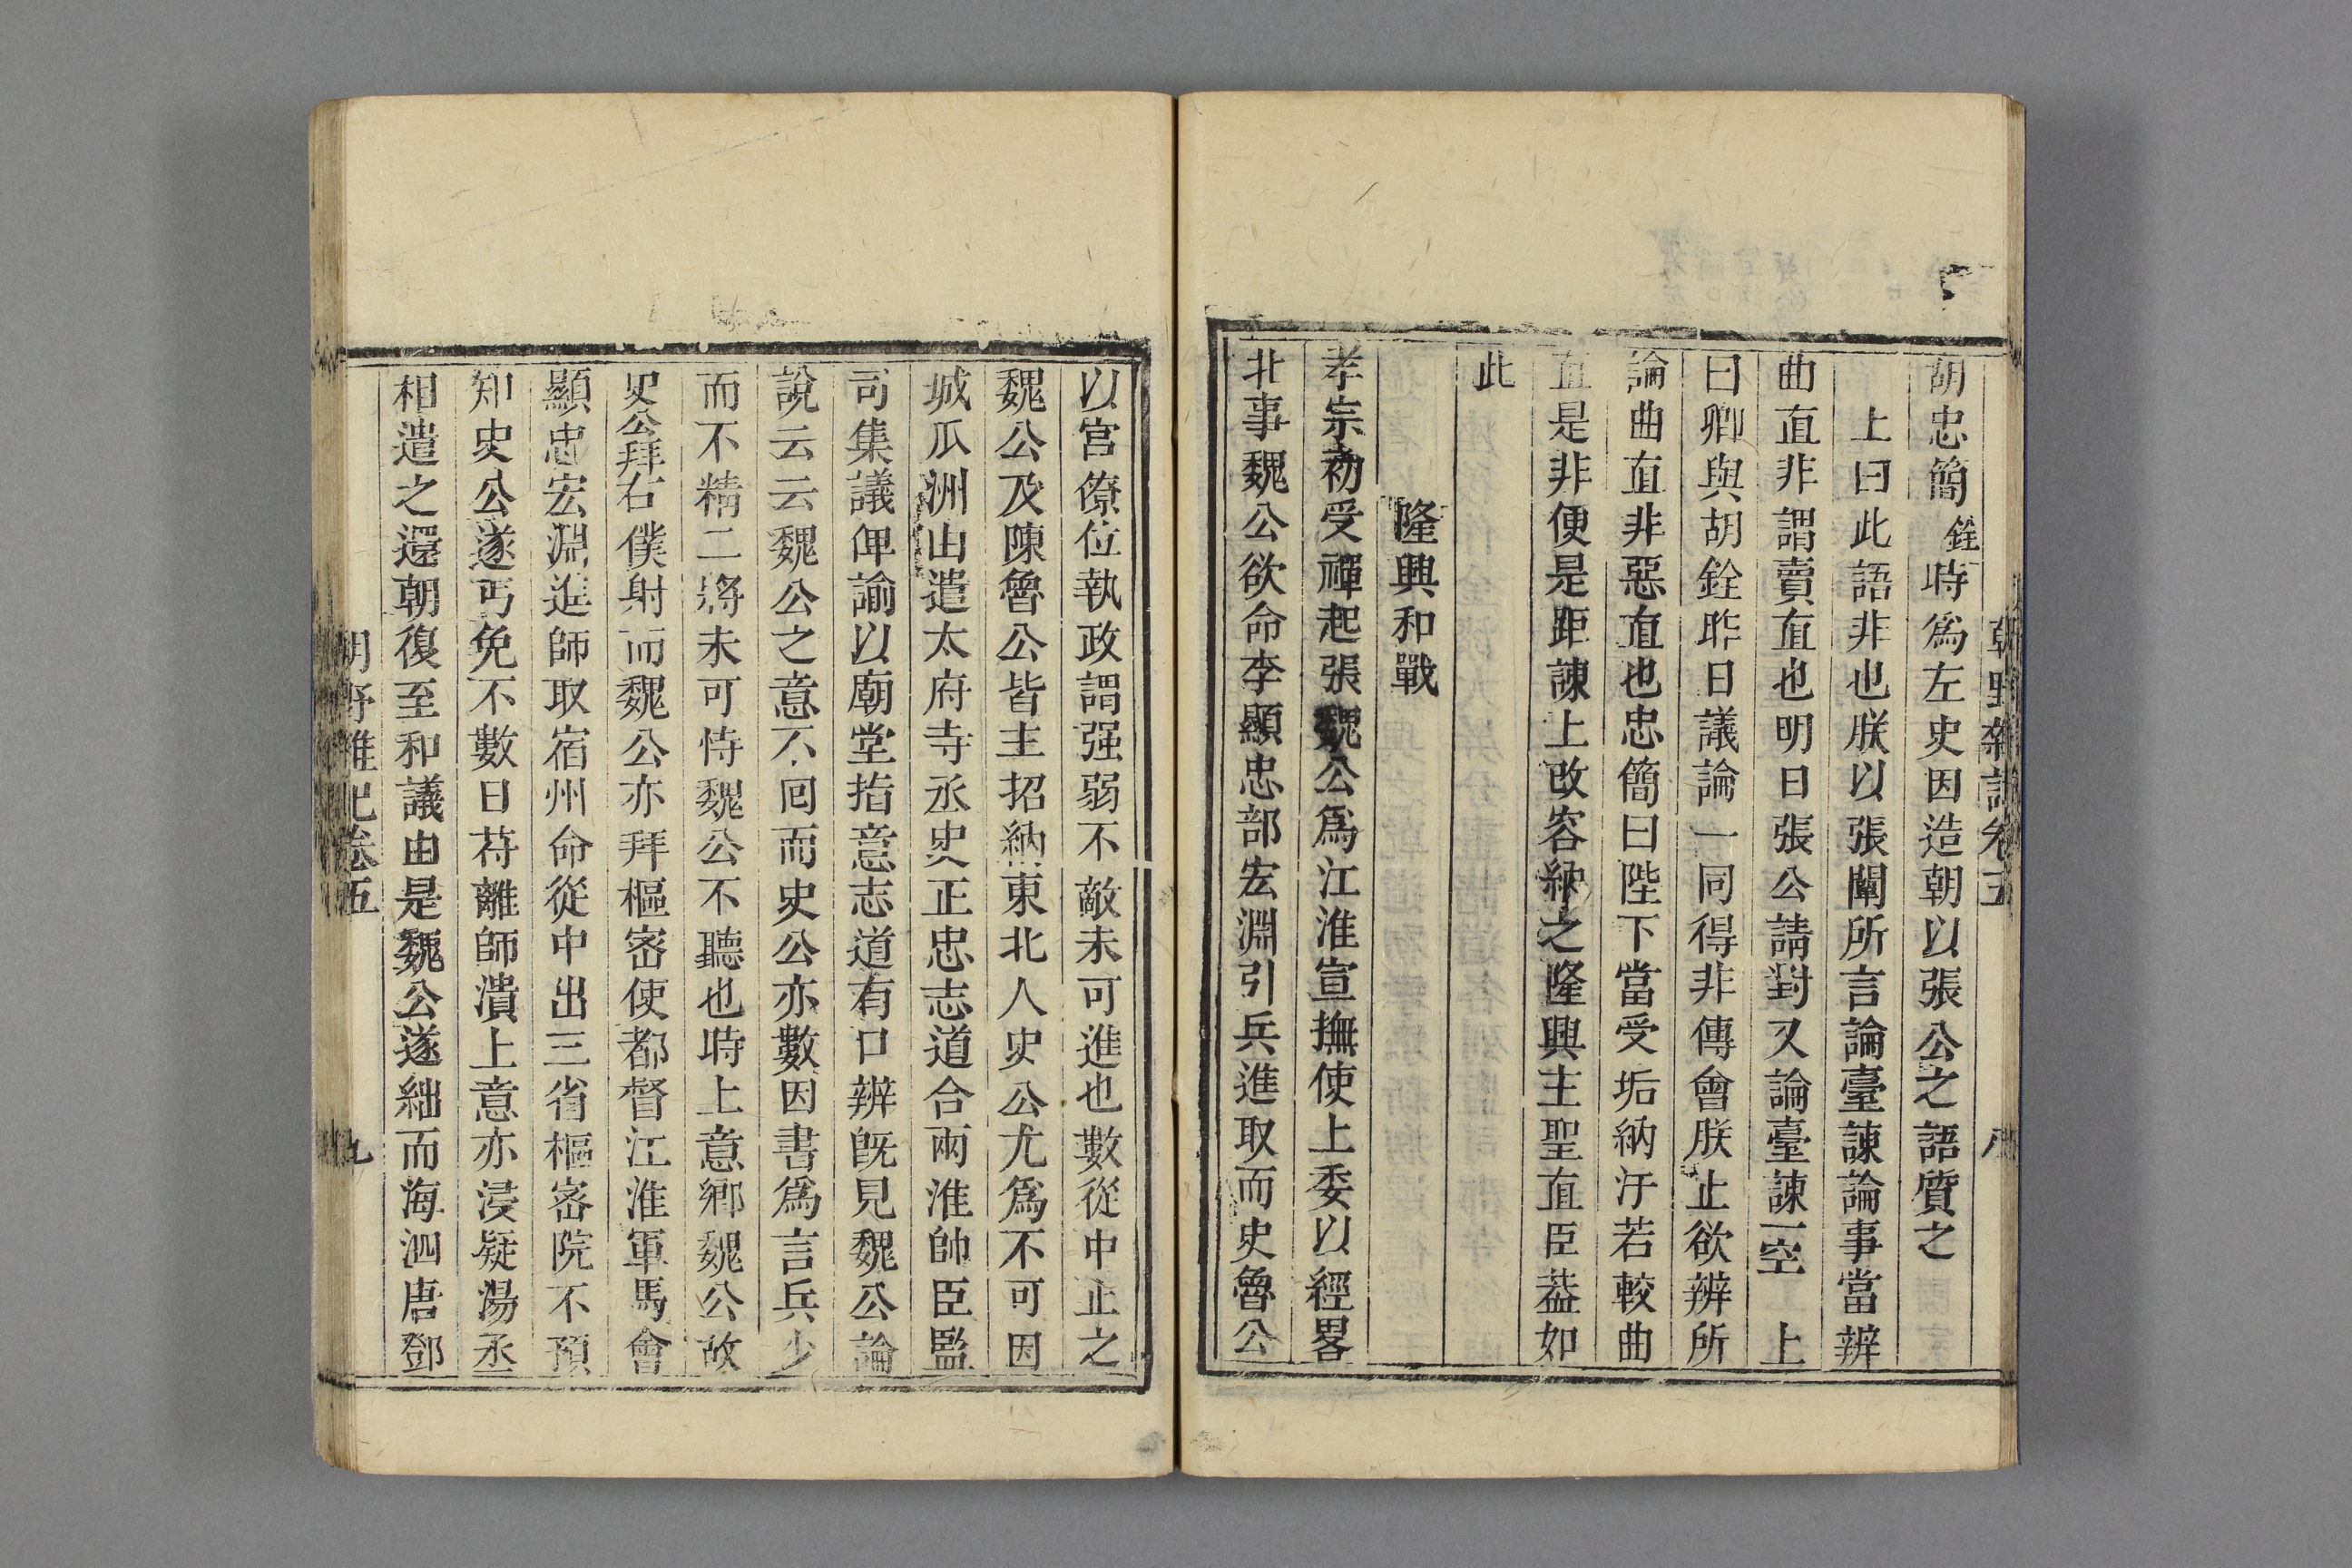 朝野雜記卷五
八
胡忠簡銓時爲左史因造朝以張公之語質之
上曰此語非也朕以張闡所言論臺諫論事當辨
曲直非謂賣直也明日張公請對又論臺諫一空 上
曰卿與胡銓昨日議論一同得非傳會朕止欲辨所
論曲直非惡直也忠簡曰陛下當受垢納汙若較曲
直是非便是距諫上改容納之隆興主聖直臣葢如
此
隆興和戰
孝宗初受禪起張魏公爲江淮宣撫使上委以經畧
北事魏公欲命李顯忠部宏淵引兵進取而史魯公
以宮僚位執政謂强弱不敵未可進也數從中止之
魏公及陳魯公皆主招納東北人史公尤爲不可因
城瓜洲山遣太府寺丞史正忠志道合兩淮帥臣監
司集議俾諭以廟堂指意志道有口辨旣見魏公論
說云云魏公之意不囘而史公亦數因書爲言兵少
而不精二將未可恃魏公不聽也時上意鄉魏公故
史公拜右僕射而魏公亦拜樞密使都督江淮軍馬會
顯忠宏淵進師取宿州命從中出三省樞密院不預
知史公遂丐免不數日苻離師潰上意亦浸疑湯丞
相遣之還朝復至和議由是魏公遂絀而海泗唐鄧
朝野雜記卷五
九